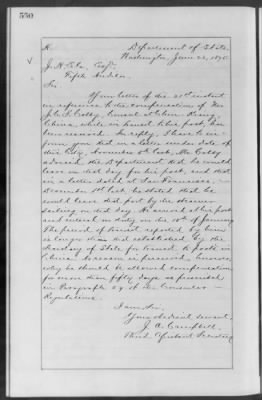 550
Department of State
Washington, June 22, 1875
J. H. Ela, Esqr.
Fifth Auditor.
Sir:
Your letter of the 21st instant
in reference to the compensation of Mr.
J. C. S. Colby, Consul at Chin Kiang,
China, while in transit to his post, has
been received. In reply, I have to in-
form you that in a letter under date of
this City, November 6th last, Mr. Colby
advised the Department that he would
leave on that day for his post, and that
in a letter dated at San Francisco,
December 1st last he stated that he
would leave that port by the steamer
sailing on that day. He arrived at his post
and entered on duty on the 10th of January
The period of transit reported by him
is longer than that established by the
Secretary of State for transit to posts in
China. No reason is perceived, however,
why he should be allowed compensation
for more than fifty days, as prescribed
in Paragraph of the Consular
Regulations.
I am, Sir,
Your obedient servant,
J. A. Campbell
Third Assistant Secretary